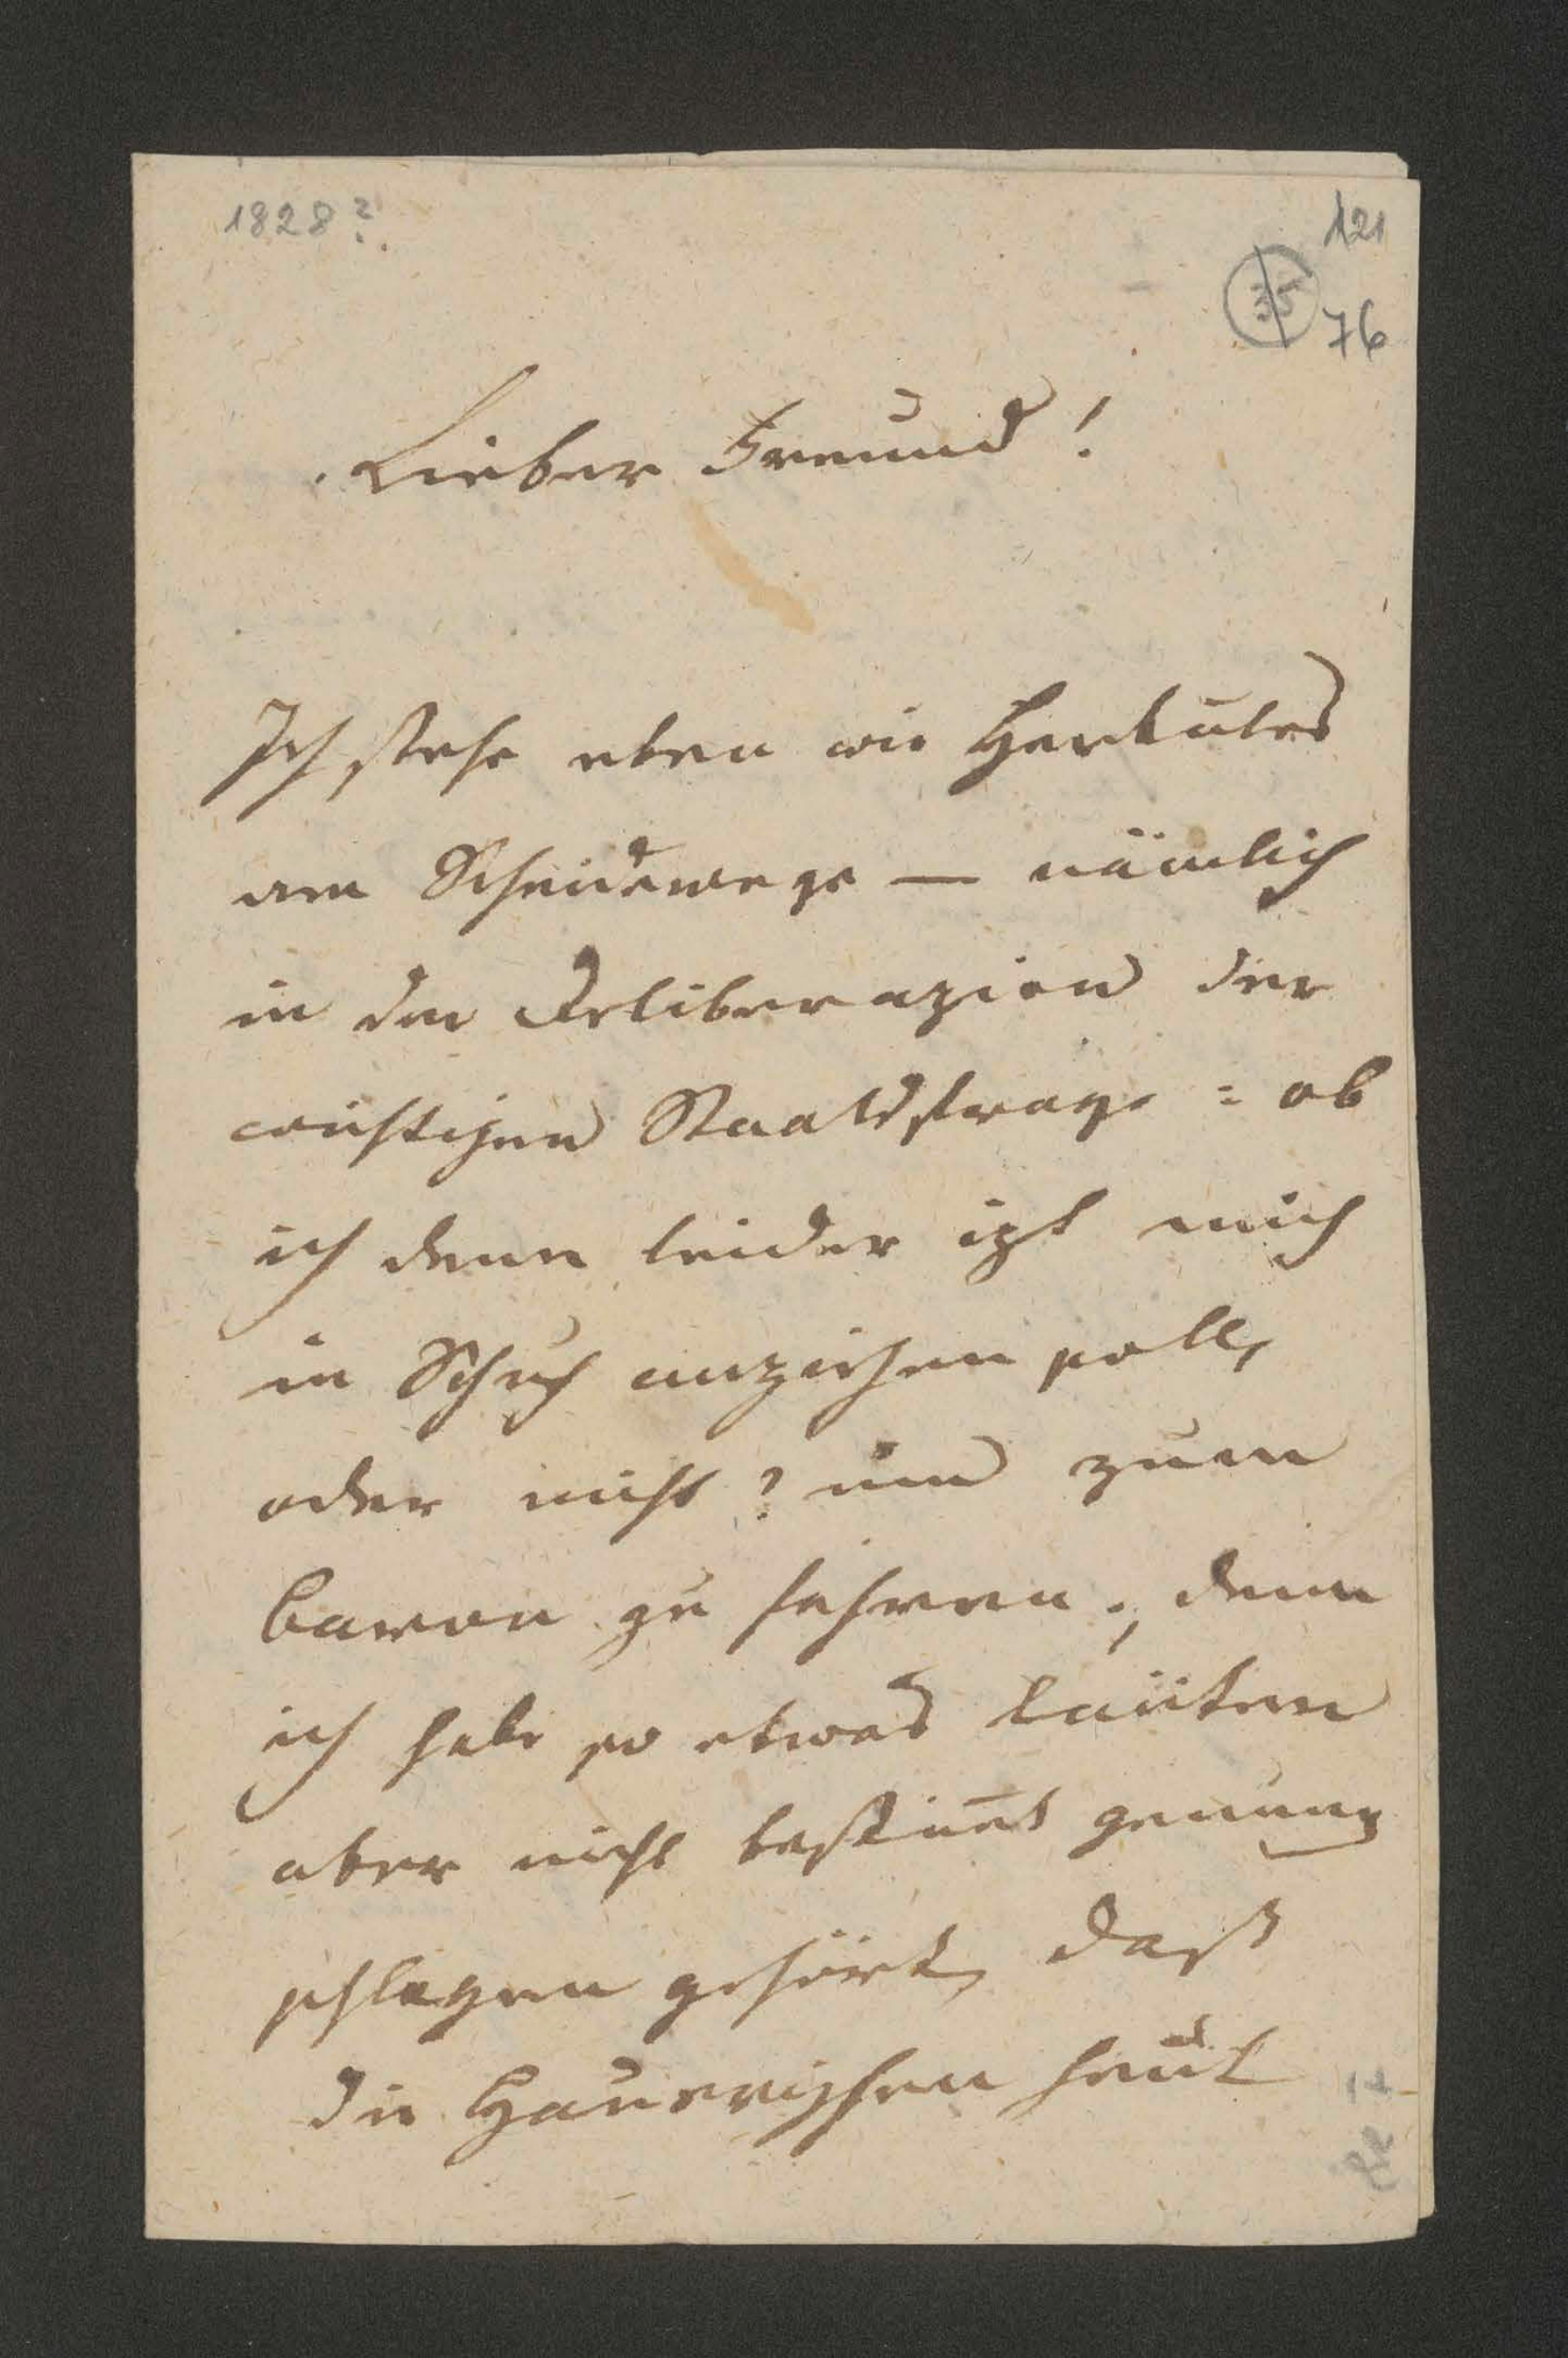 1828?
121
35
76
Lieber Freund!
Ich stehe eben wie Herkules
am Scheidewege — nämlich
in der Deliberazion der
wichtigen Staatsfrage: ob
ich denn leider izt mich
in Schuh anziehen soll,
oder nicht? um zum
Baron zu fahren; denn
ich habe so etwas läuten
aber nicht bestim̄t genung
schlagen gehört, daß
die Hauerischen heut